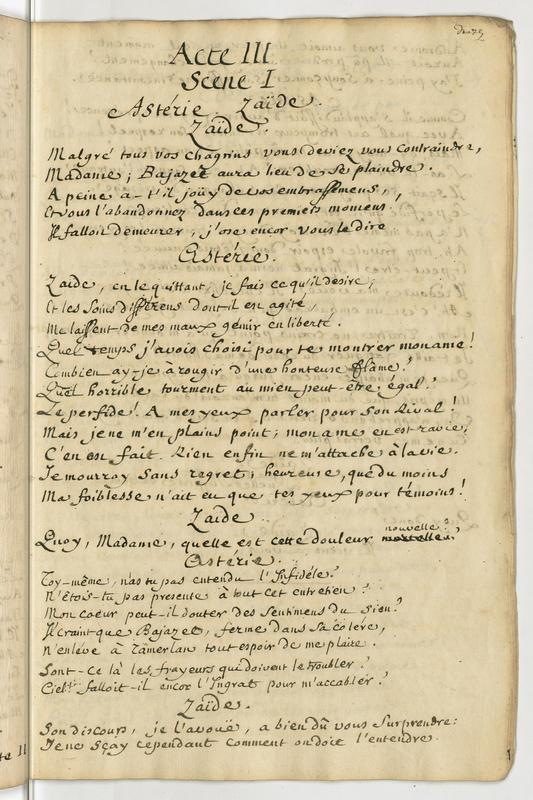 Acte III
Scene I
Astérie. Zaïde.
Zaïde.
Malgré tous vos chagrins vous deviez vous contraindre,
Madame; Bajazet aura lieu de se plaindre.
A peine a-t'il joüy de vos embrassemens,
Et vous l'abandonnez dans ces premiers momens!
Il falloit demeurer, j'ose encor vous le dire
Astérie.
Zaïde, en le quittant, je fais ce qu'il desire;
Et les Soins différens dont il est agité,
Me laissent de mes maux gémir en liberté.
Quel temps j'avois choisi pour te montrer mon ame!
Combien ay-je à rougir d'une honteuse flâme!
Quel horrible tourment au mien peut-être égal?
Le perfide! A mes yeux parler pour son Rival!
Mais je ne m'en plains point; mon ame en est ravie;
C'en est fait. Rien enfin ne m'attache à la vie.
Je mourray Sans regret; heureuse, que du moins
Ma foiblesse n'ait eu que tes yeux pour témoins!
Zaïde
Quoy, Madame, quelle est cette douleur mortelle? nouvelle?
Astérie.
Toy-même, n'as tu pas entendu l'Infidéle?
N'étois-tu pas presente à tout cet entretien?
Mon coeur peut-il douter des Sentimens du Sien?
Il craint que Bajazet, ferme dans Sa colere,
N'enléve à Tamerlan tout espoir de me plaire.
Sont-ce là les frayeurs qui doivent le troubler?
Ciel! falloit-il encor l'Ingrat pour m'accabler?
Zaïde.
Son discours, je l'avouë, a bien dû vous Surprendre:
Je ne Sçay cependant comment on doit l'entendre.